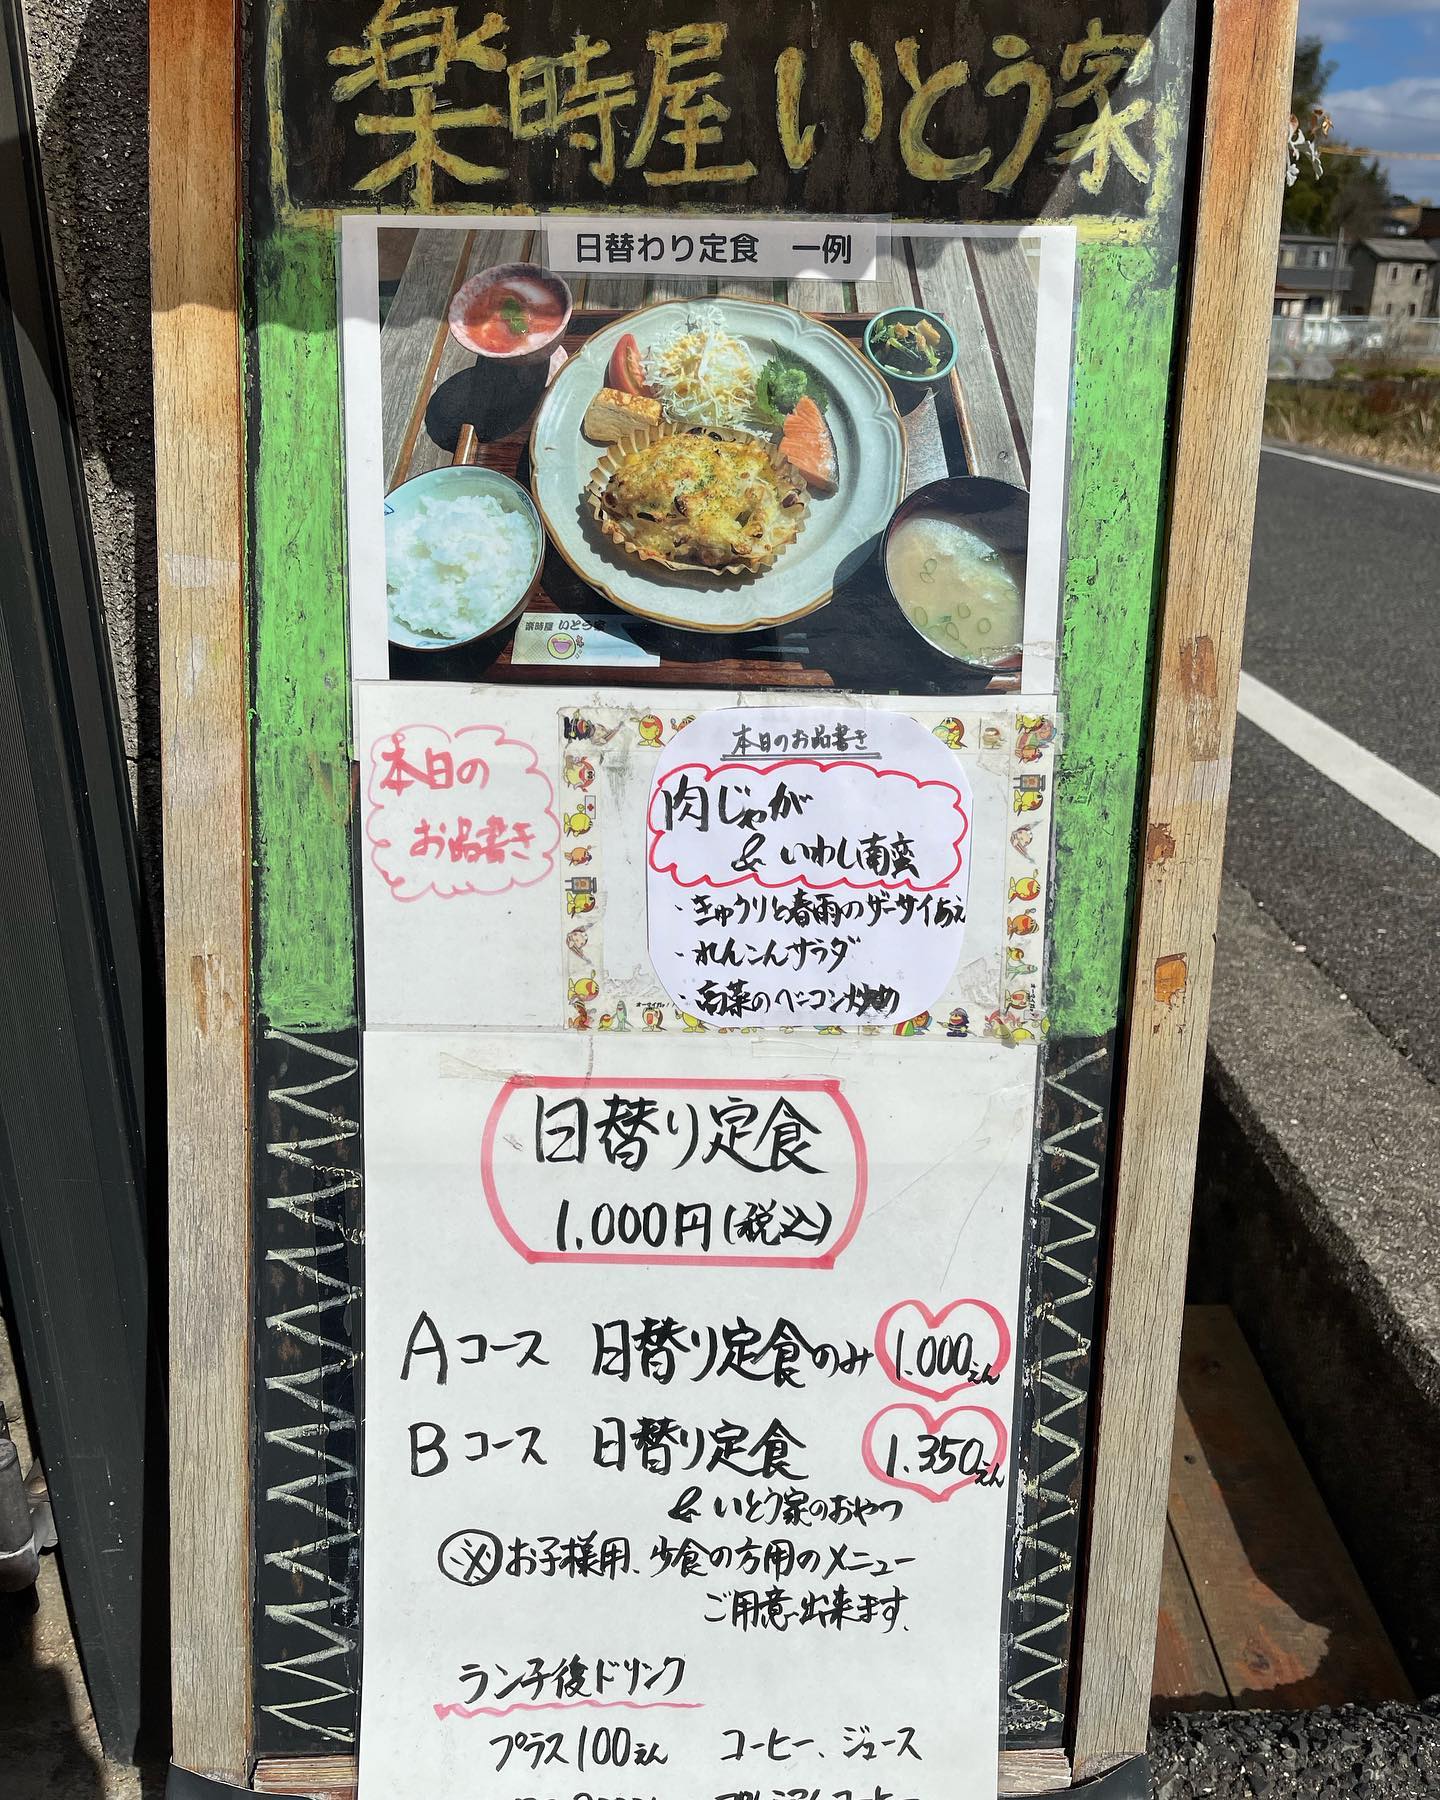 楽時屋 いとう家
日替わり定食 一例
楽時屋 いとう家
本日の
お品書き
本日のお品書き
肉じゃが
& いわし南蛮
・きゅうりと春雨のザーサイあえ
・れんこんサラダ
・高菜のベーコン炒め
日替り定食
1.000円(税込)
Aコース 日替り定食のみ 1.000えん
Bコース 日替り定食 1.350えん
& いとう家のおやつ
※お子様用、少食の方用のメニュー
ご用意出来ます。
ランチ後ドリンク
プラス100えん コーヒー、ジュース